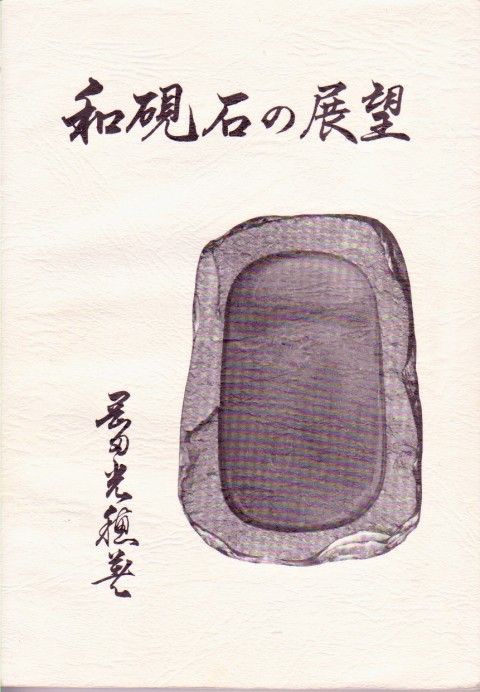 和硯石の展望
岡田光穂著